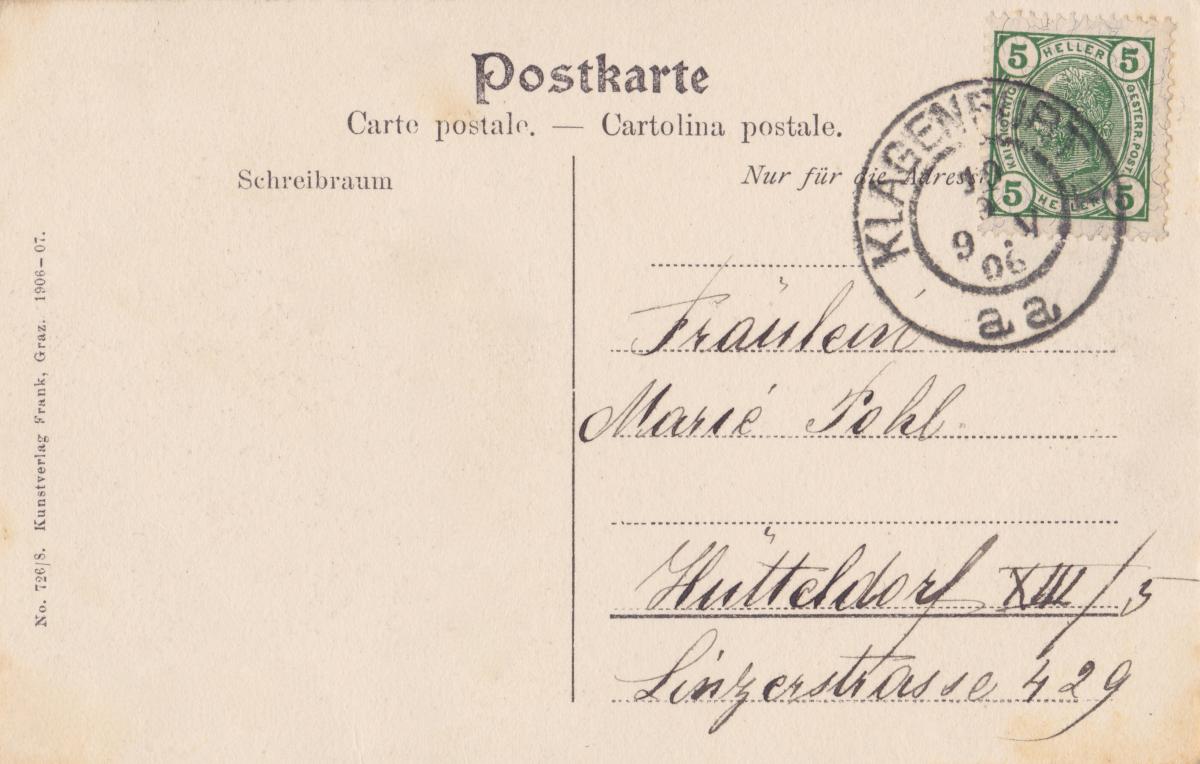 Postkarte
Carte postale. — Cartolina postale.
Schreibraum
Nur für die Adresse
5 HELLER 5
KAISERKOENIGL OESTERR. POST
5 HELLER 5
KLAGENFURT
9 V
06
a a
Fräulein
Marie Pohl
Hütteldorf XIII/5
Linzerstrasse 429
No. 726/8. Kunstverlag Frank, Graz. 1906-07.